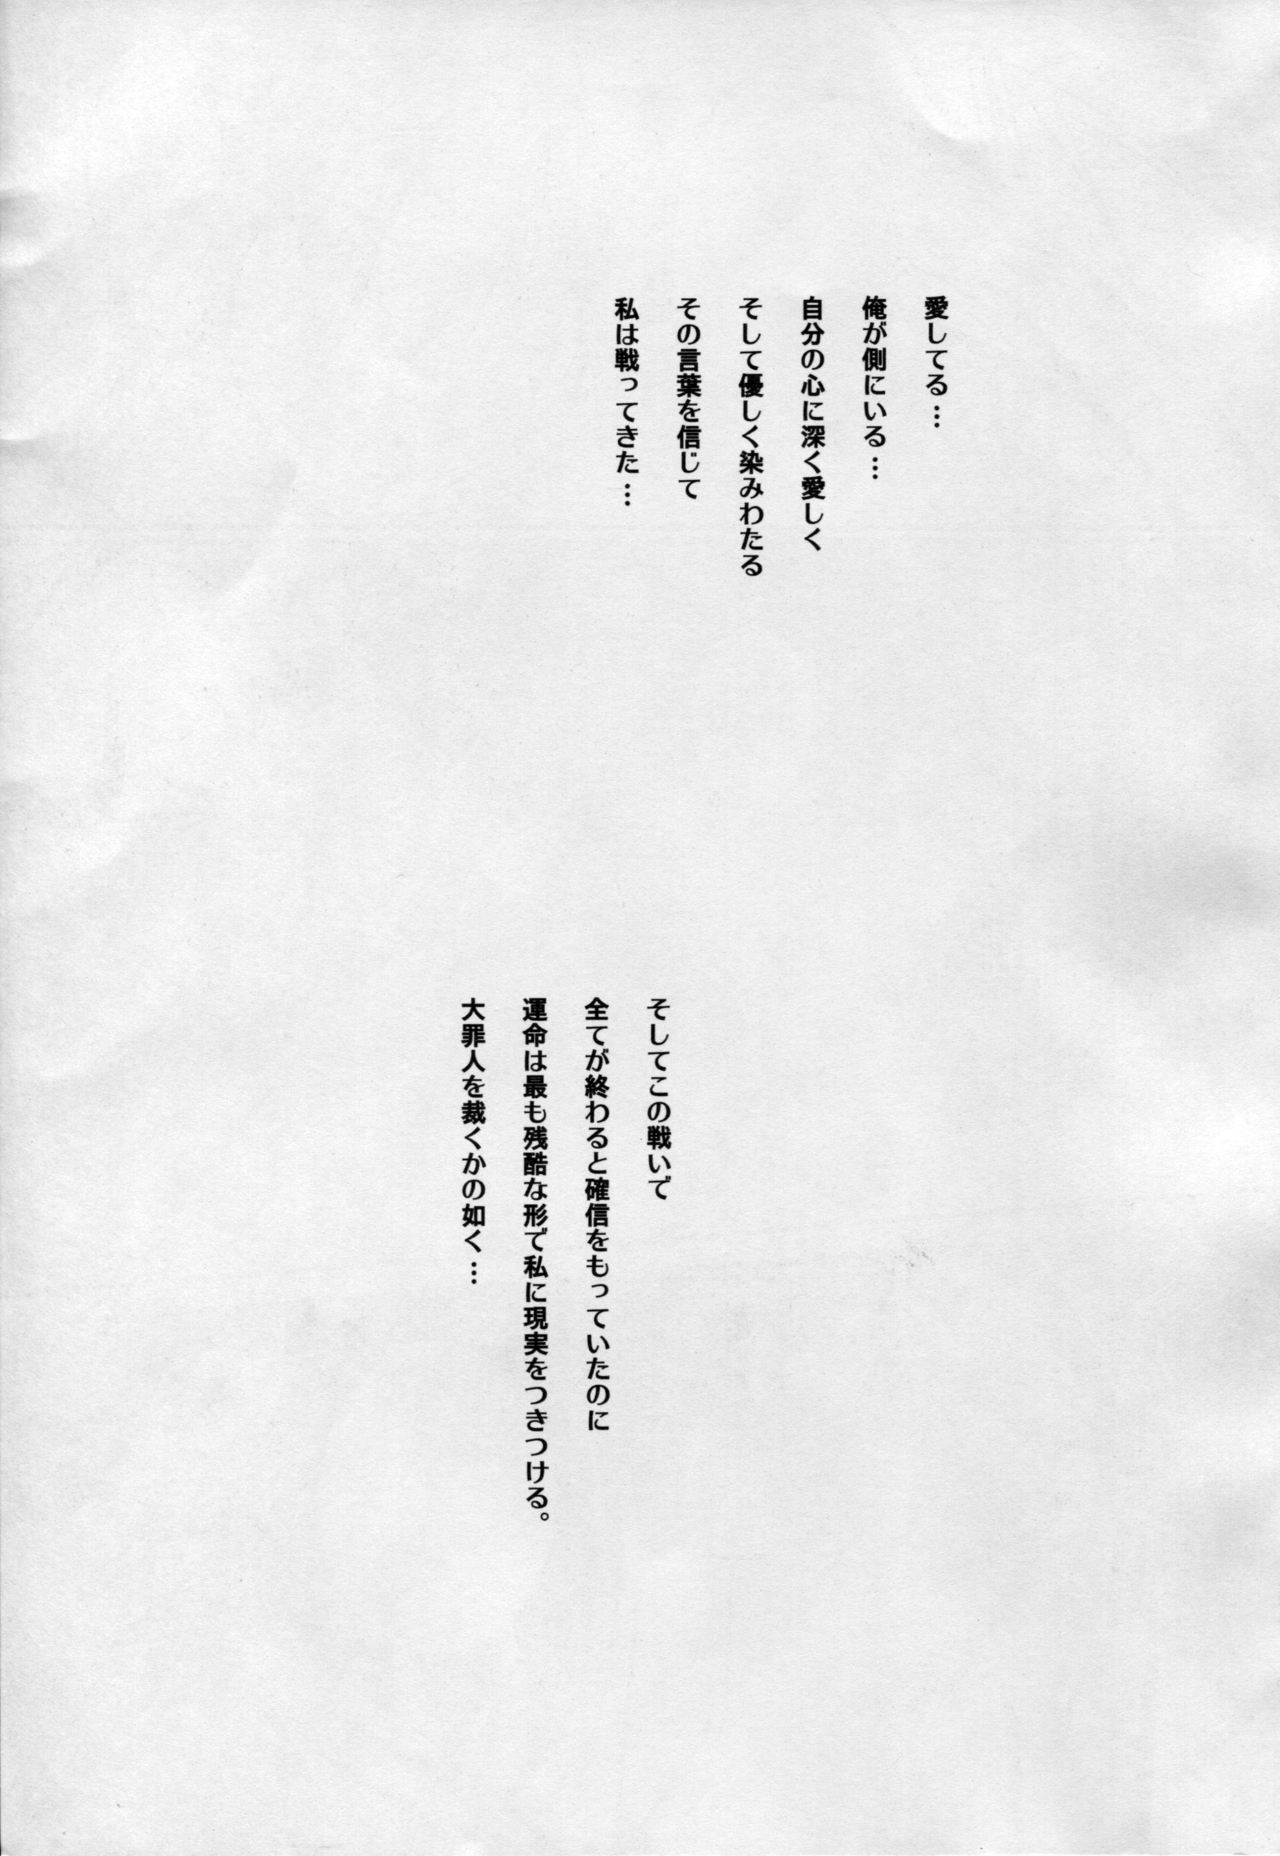 愛してる…
俺が側にいる…
自分の心に深く愛しく
そして優しく染みわたる
その言葉を信じて
私は戦ってきた…
そしてこの戦いで
全てが終わると確信をもっていたのに
運命は最も残酷な形で私に現実をつきつける。
大罪人を裁くかの如く…